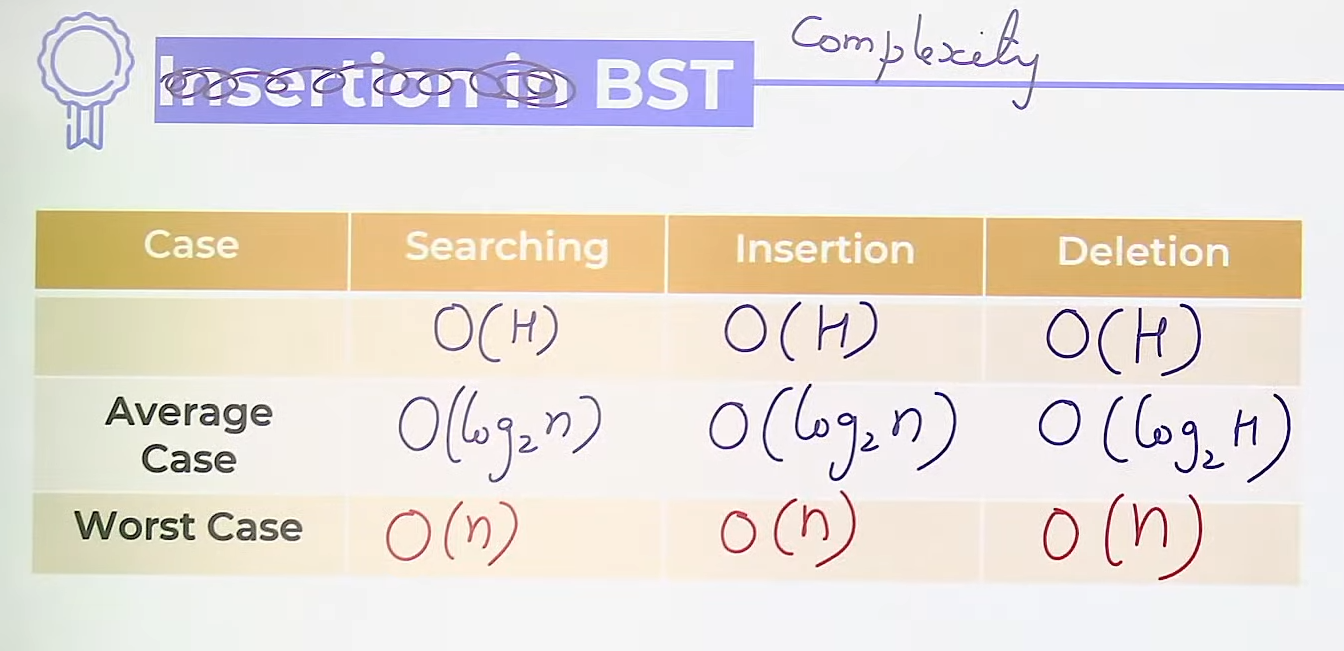 Complexity
Insertion in BST
Case Searching Insertion Deletion
O(H) O(H) O(H)
Average
Case O(log₂n) O(log₂n) O(log₂H)
Worst Case O(n) O(n) O(n)